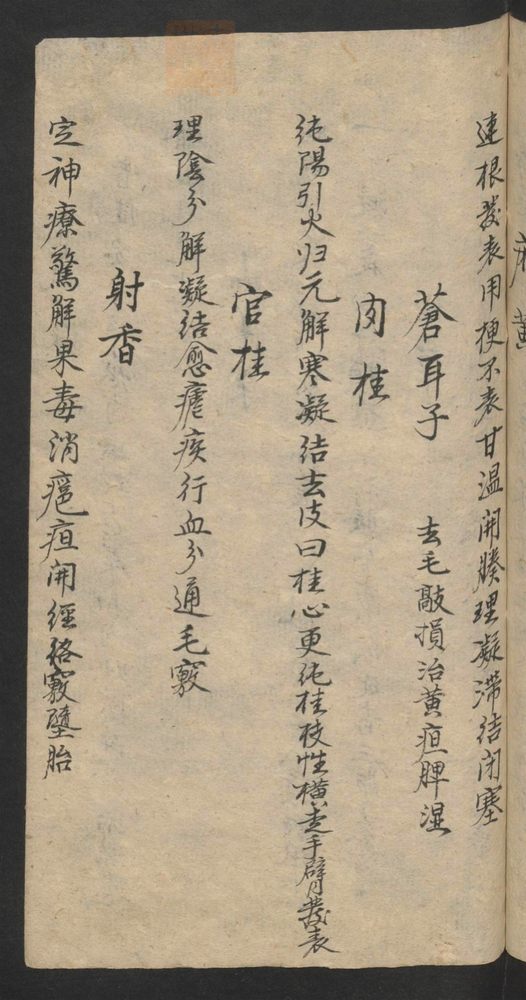 麻黄
連根發表用梗不表甘溫開腠理凝滞结闭塞
蒼耳子 去毛敲損治黄疸脾湿
肉桂
純陽引火归元解寒凝结去皮曰桂心更純桂枝性横走手臂發表
官桂
理陰分解凝结愈瘧疾行血分通毛竅
射香
定神療驚解果毒消疤疸開經络竅墮胎